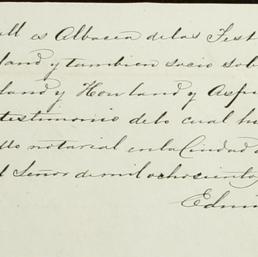 ll es Albacea de las Test
land y tambien socio sob
land y Howland y Aspi
testimonio de lo cual h
llo notarial en la Ciudad d
l Señor de mil ochociento
Edw